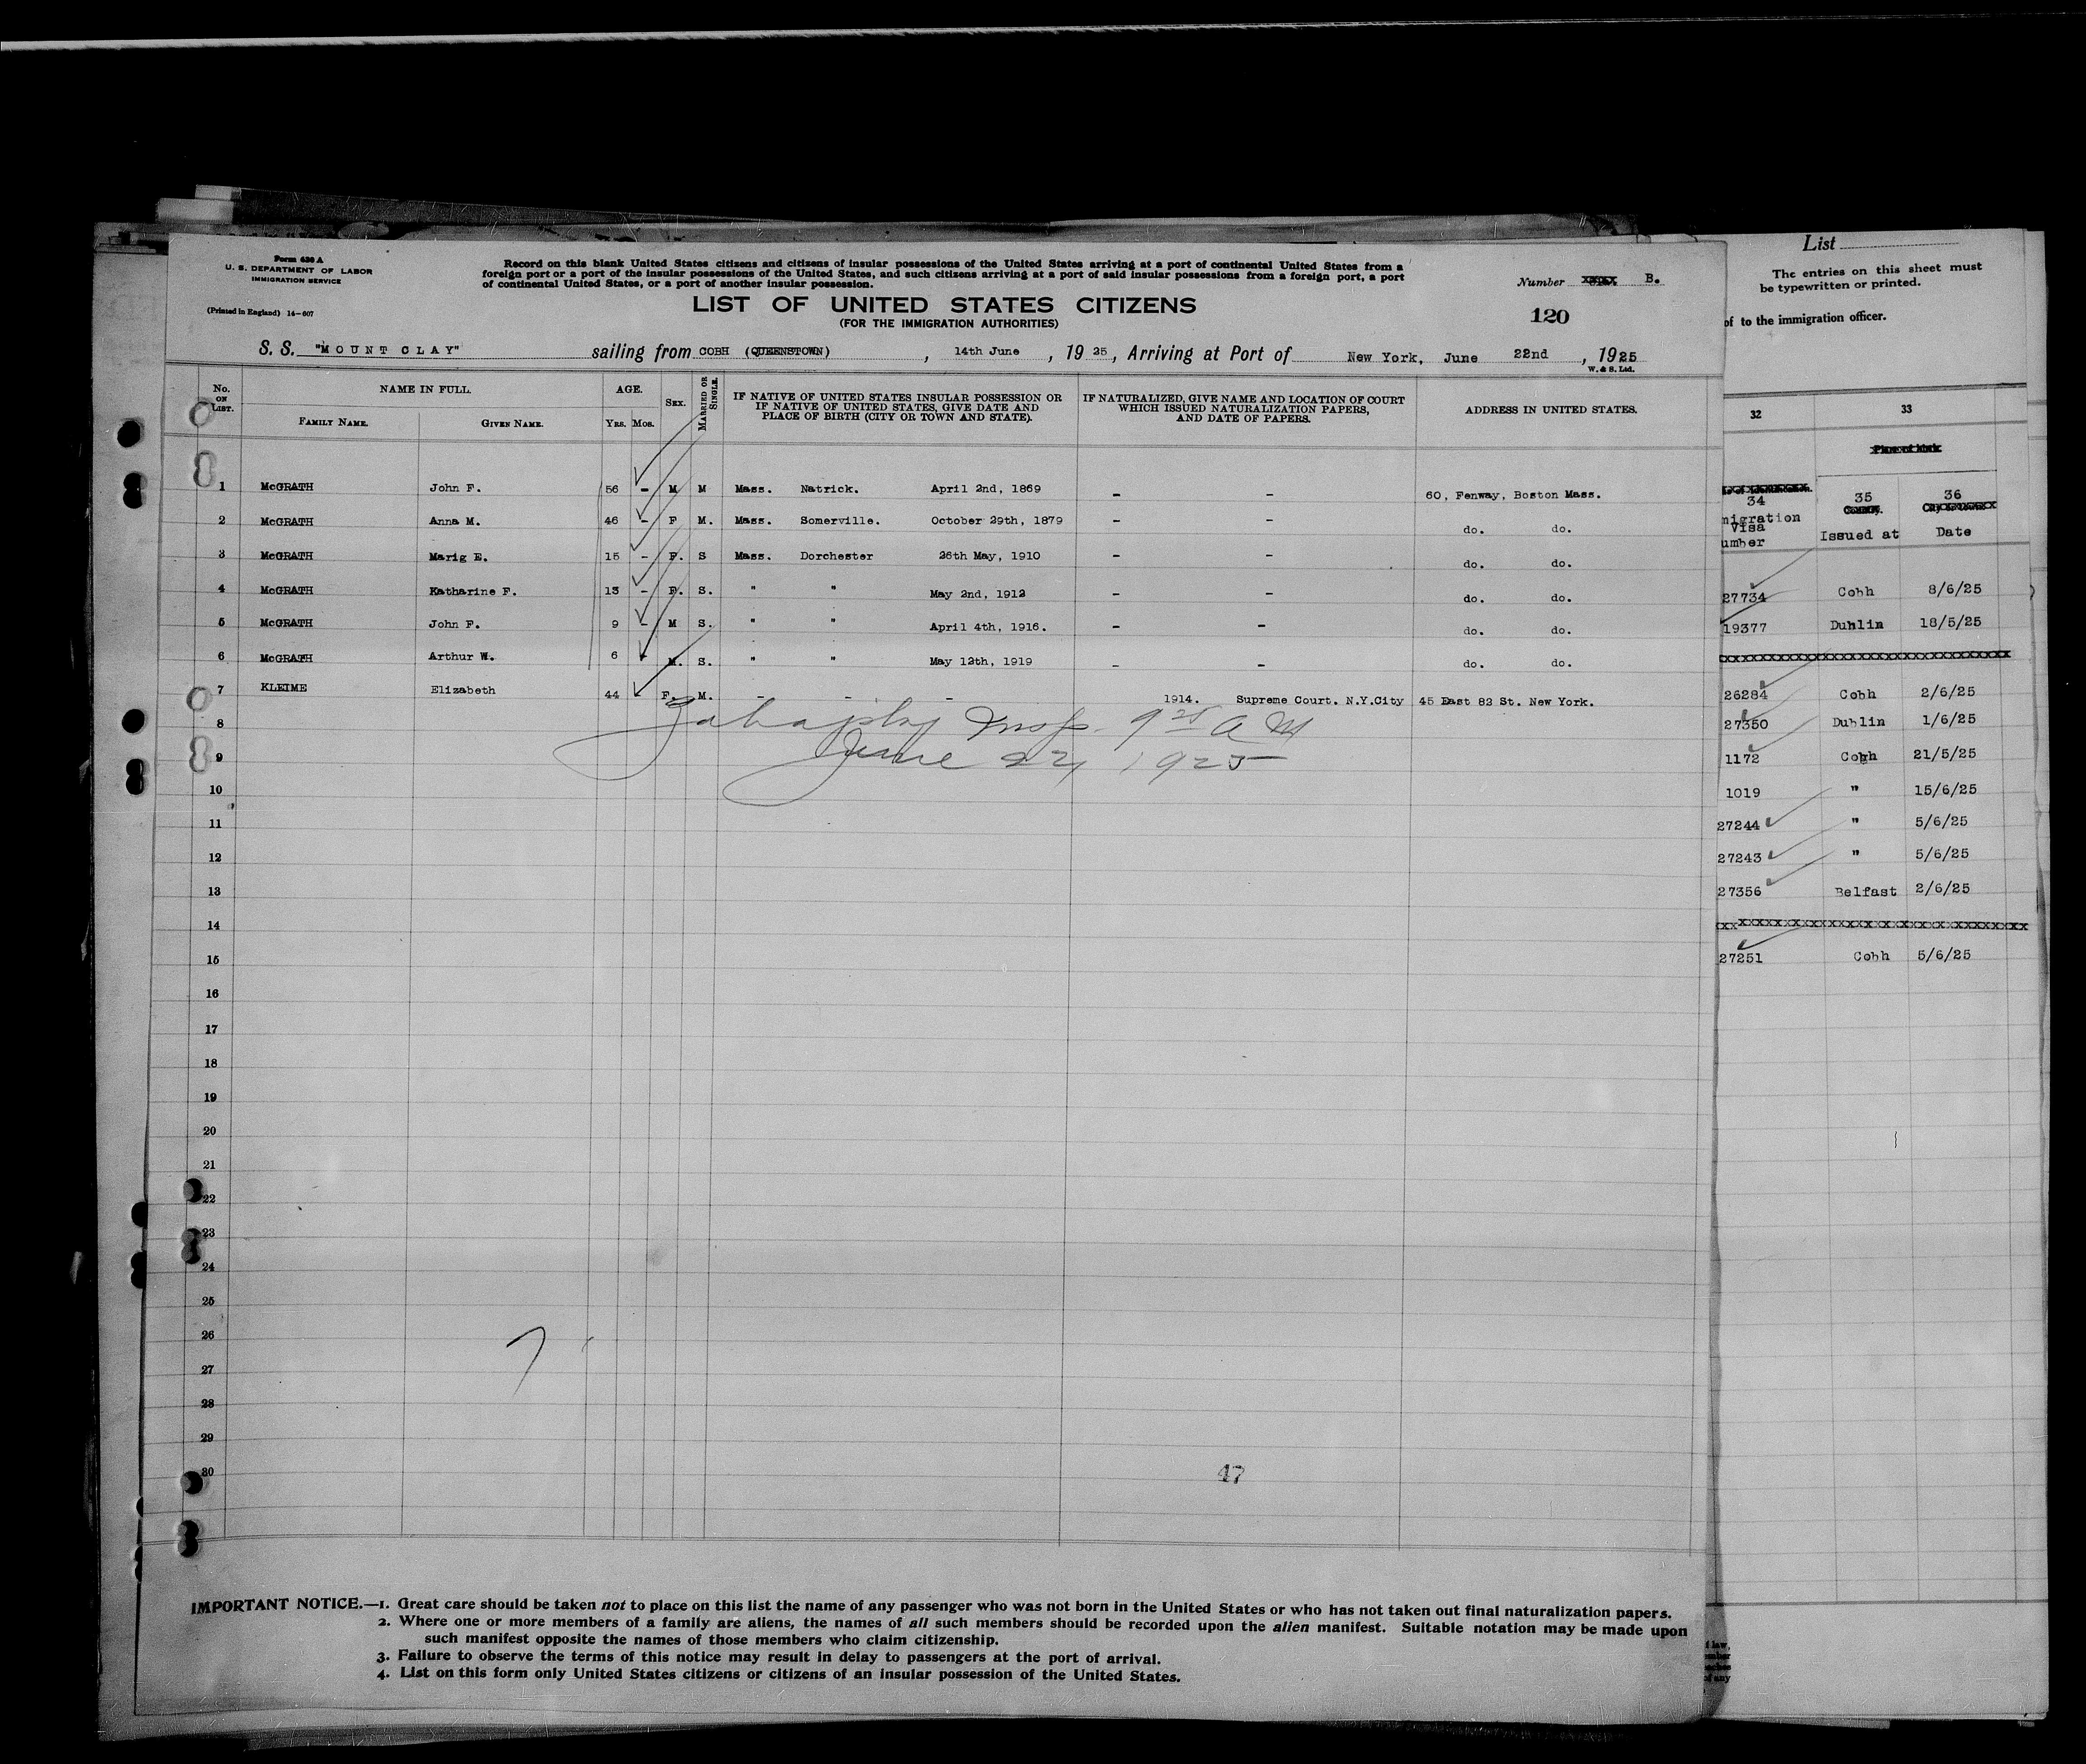 Form 630 A
U. S. DEPARTMENT OF LABOR
IMMIGRATION SERVICE
(Printed in England) 14-607
Record on this blank United States citizens and citizens of insular possessions of the United States arriving at a port of continental United States from a
foreign port or a port of the insular possessions of the United States, and such citizens arriving at a port of said insular possessions from a foreign port, a port
of continental United States, or a port of another insular possession.
LIST OF UNITED STATES CITIZENS
(FOR THE IMMIGRATION AUTHORITIES)
Number B.
120
S. S. "MOUNT CLAY" sailing from COBH (QUEENSTOWN), 14th June, 19 25, Arriving at Port of New York, June 22nd, 1925
W. & S. Ltd.
No. ON LIST. NAME IN FULL. AGE. SEX. MARRIED OR SINGLE. IF NATIVE OF UNITED STATES INSULAR POSSESSION OR IF NATIVE OF UNITED STATES, GIVE DATE AND PLACE OF BIRTH (CITY OR TOWN AND STATE). IF NATURALIZED, GIVE NAME AND LOCATION OF COURT WHICH ISSUED NATURALIZATION PAPERS, AND DATE OF PAPERS. ADDRESS IN UNITED STATES.
FAMILY NAME. GIVEN NAME. YRS. MOS.
1 McGRATH John F. 56 - M M Mass. Natrick. April 2nd, 1869 - - 60, Fenway, Boston Mass.
2 McGRATH Anna M. 46 - F M. Mass. Somerville. October 29th, 1879 - - do. do.
3 McGRATH Marig E. 15 - F. S Mass. Dorchester 26th May, 1910 - - do. do.
4 McGRATH Katharine F. 13 - F. S. " " May 2nd, 1912 - - do. do.
5 McGRATH John F. 9 - M S. " " April 4th, 1916. - - do. do.
6 McGRATH Arthur W. 6 M. S. " " May 12th, 1919 - - do. do.
7 KLEIME Elizabeth 44 F. M. - - - 1914. Supreme Court. N.Y.City 45 East 82 St. New York.
8
Insp. 9 25 A M
9
June 22, 1925
10
11
12
13
14
15
16
17
18
19
20
21
22
23
24
25
26
7
27
28
29
30
47
IMPORTANT NOTICE.—1. Great care should be taken not to place on this list the name of any passenger who was not born in the United States or who has not taken out final naturalization papers.
2. Where one or more members of a family are aliens, the names of all such members should be recorded upon the alien manifest. Suitable notation may be made upon
such manifest opposite the names of those members who claim citizenship.
3. Failure to observe the terms of this notice may result in delay to passengers at the port of arrival.
4. List on this form only United States citizens or citizens of an insular possession of the United States.
List
The entries on this sheet must
be typewritten or printed.
of to the immigration officer.
32 33
34 35 36
migration
Visa
umber Issued at Date
27734 Cobh 8/6/25
19377 Dublin 18/5/25
xxxxxxxxxxxxxxxxxxxxxxxxxxxxxxxxxxx
26284 Cobh 2/6/25
27350 Dublin 1/6/25
1172 Cobh 21/5/25
1019 " 15/6/25
27244 " 5/6/25
27243 " 5/6/25
27356 Belfast 2/6/25
xxxxxxxxxxxxxxxxxxxxxxxxxxxxxxxxxxx
27251 Cobh 5/6/25